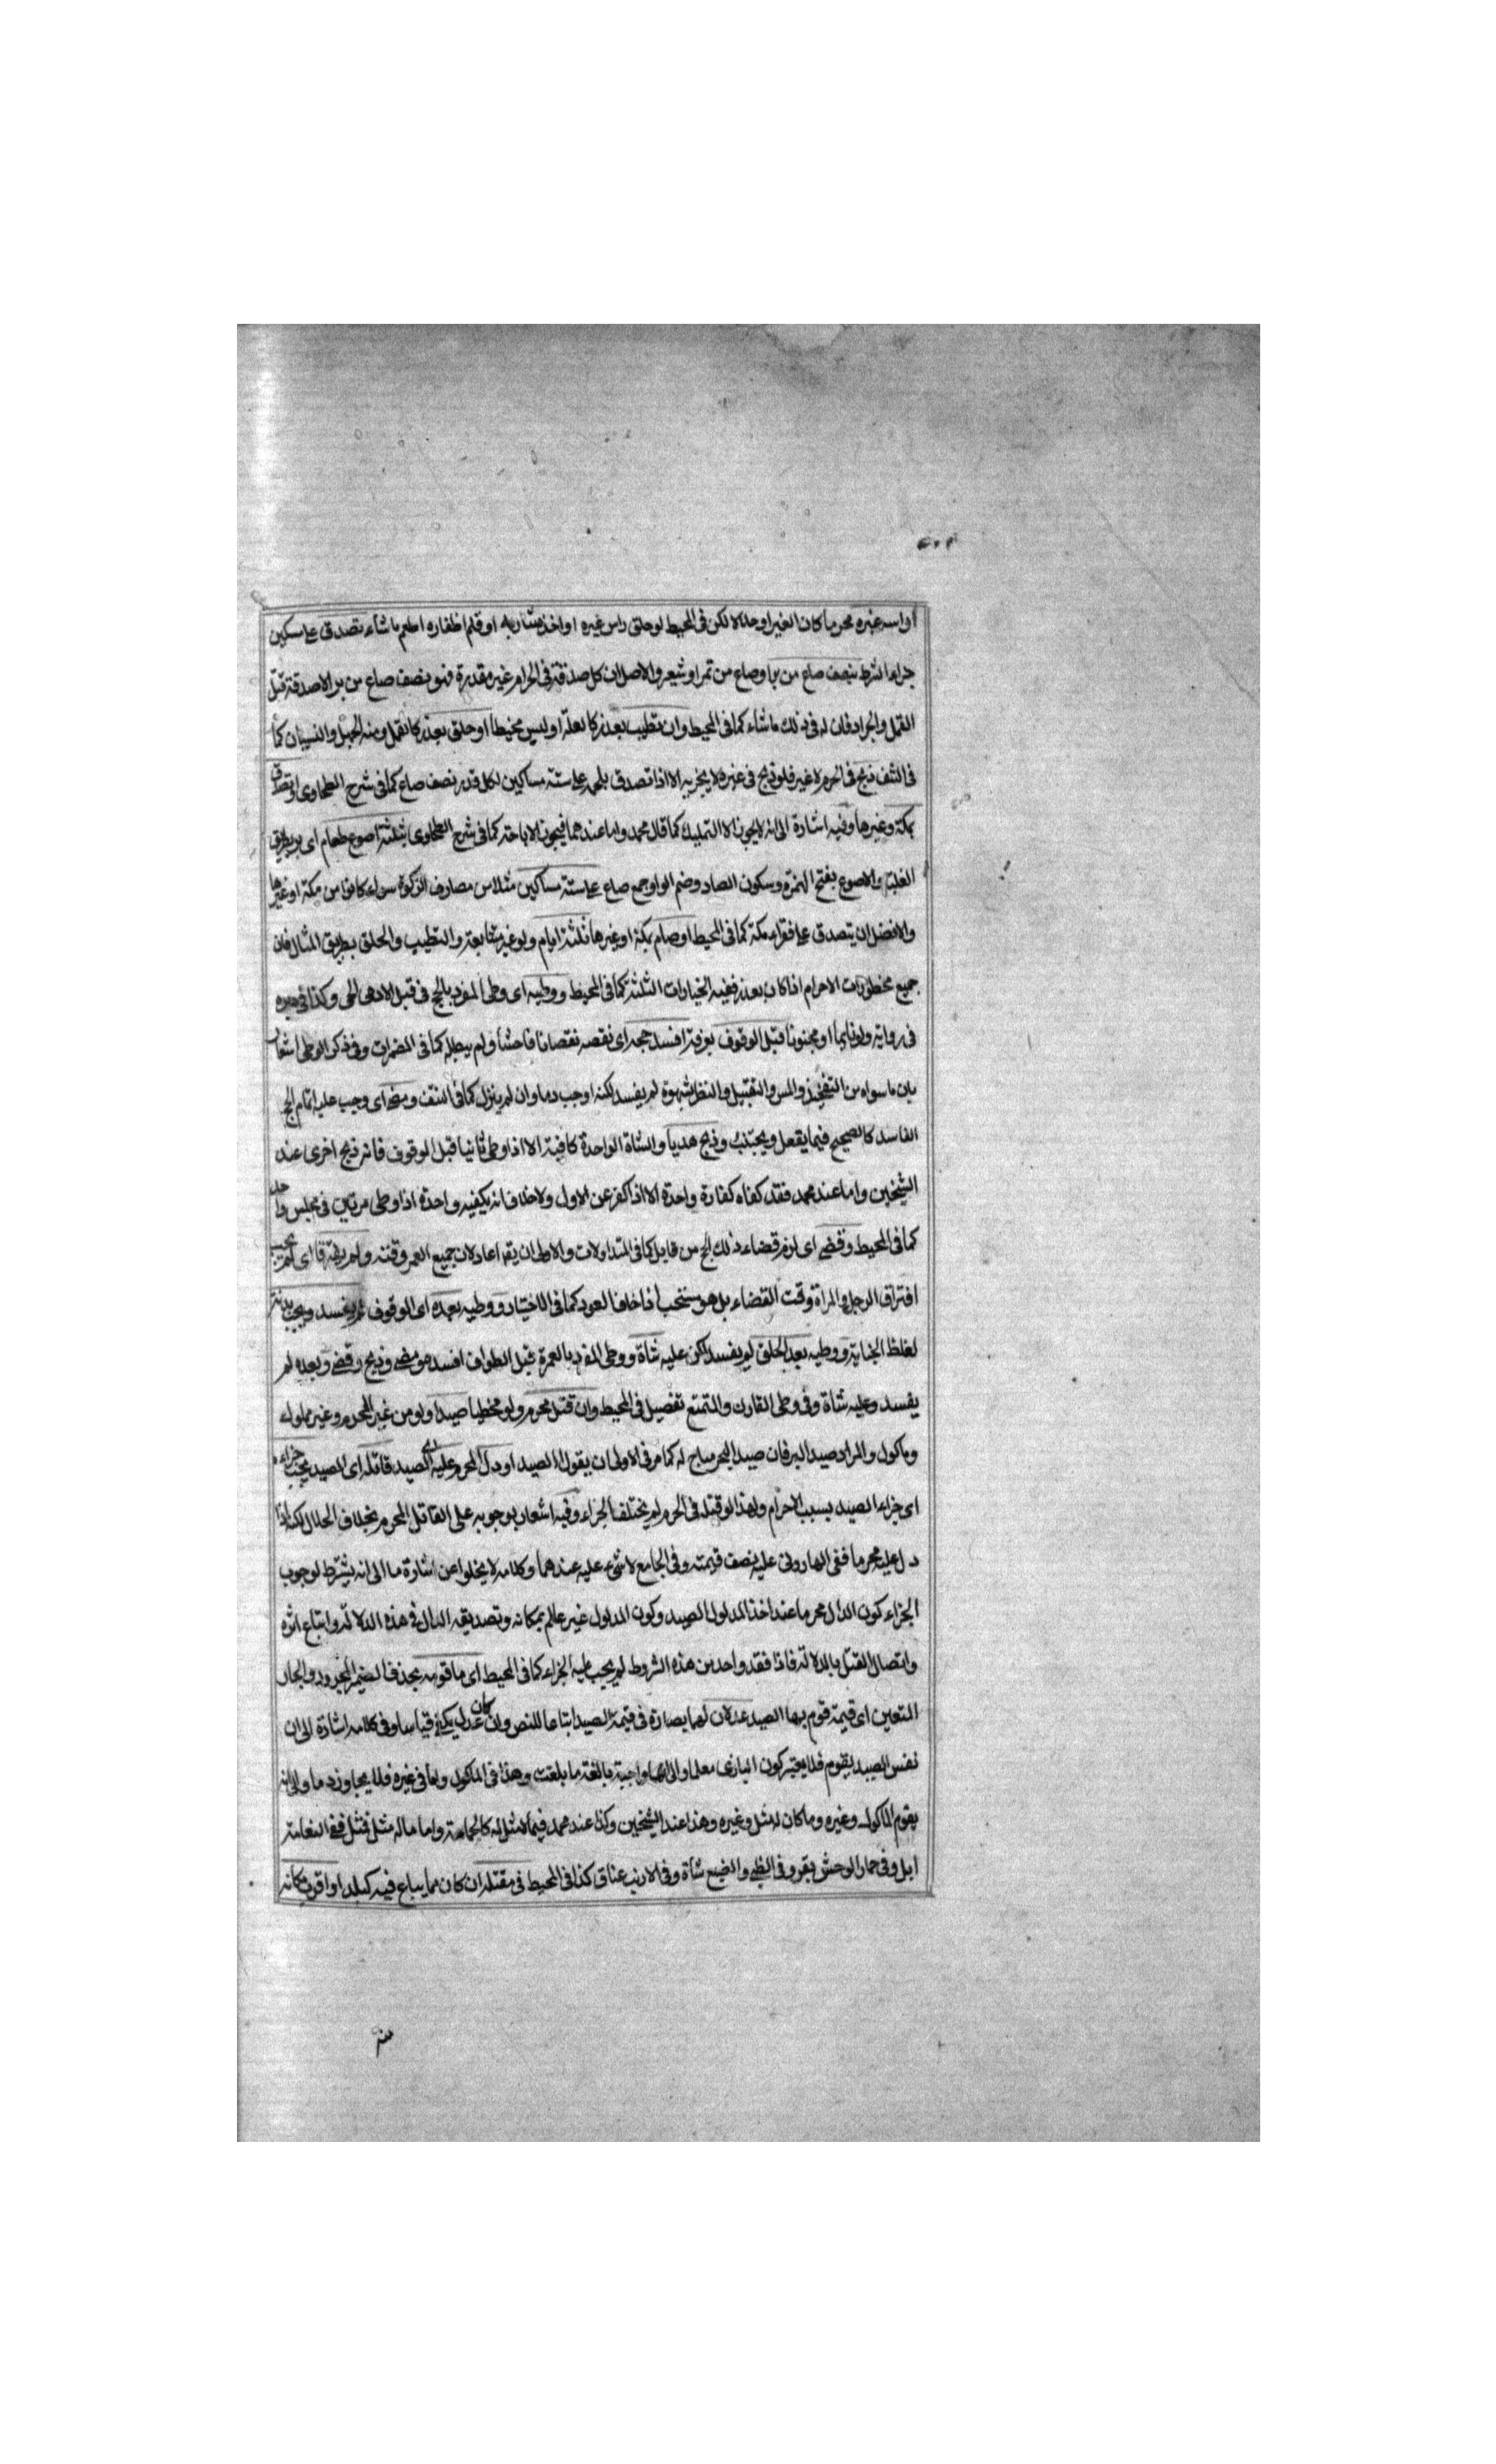 او راسه غيره محرما كان الغير او حلالا لكن فى المحيط لو حلق راس غيره او اخذ شاربه او قلم اظفاره اطعم ما شاء تصدق على مسكين
جزاء الشرط بنصف صاع من بر او صاع من تمر او شعير والاصل ان كل صدقة فى الحرام غير مقدرة فهو نصف صاع من بر الا صدقة قتل
القمل والجراد فان له فى ذلك ما شاء كما فى المحيط وان تطيب بعذر كالعلة او لبس مخيطا او حلق بعذر كالقمل ومنه الجهل والنسيان كما
فى النتف ذبح فى الحرم لا غير فلو ذبح فى غيره لا يجزيه الا اذا تصدق بلحمه على ستة مساكين لكل قدر نصف صاع كما فى شرح الطحاوى او تصدق
بمكة وغيرها وفيه اشارة الى انه لا يجوز الا التمليك كما قال محمد واما عندهما فيجوز الاباحة كما فى شرح الطحاوى بثلثة اصوع طعام اى بر بطريق
الغلبة والاصوع بفتح الهمزة وسكون الصاد وضم الواو جمع صاع على ستة مساكين مثلا من مصارف الزكوة سواء كانوا من مكة او غيرها
والافضل ان يتصدق على فقراء مكة كما فى المحيط او صام بمكة او غيرها ثلثة ايام ولو غير متتابعة والتطيب والحلق بطريق المثال فان
جميع محظورات الاحرام اذا كان بعذر ففيه الخيارات الثلثة كما فى المحيط ووطيه اى وطى المفرد بالحج فى قبل الادمى الحى وكذا فى دبره
فى رواية ولو نايما او مجنونا قبل الوقوف بعرفة افسد حجه اى نقصه نقصانا فاحشا ولم يبطله كما فى المضمرات وفى ذكر الوطى اشعار
بان ما سواه من التفخيذ والمس والتقبيل والنظر بشهوة لم يفسد لكنه اوجب دما وان لم ينزل كما فى النتف ومضى اى وجب عليه اتمام الحج
الفاسد كالصحيح فيما يفعل ويجتنب وذبح هديا والشاة الواحدة كافية الا اذا وطى ثانيا قبل الوقوف فانه ذبح اخرى عند
الشيخين واما عند محمد فقد كفاه كفارة واحدة الا اذا كفر عن الاول ولا خلاف انه يكفيه واحدة اذا وطى مرتين فى مجلس واحد
كما فى المحيط وقضى اى لزم قضاء ذلك الحج من قابل كما فى المتداولات والاولى ان يقم اعاد لان جميع العمر وقته ولم يفترقا اى لم يجب
افتراق الرجل والمراة وقت القضاء بل هو مستحب اذا خافا العود كما فى الاختيار ووطيه بعده اى الوقوف لم يفسد ويجب بدنة
لغلظ الجناية ووطيه بعد الحلق لم يفسد لكن عليه شاة ووطى المفرد بالعمرة قبل الطواف افسد ومضى وذبح وقضى وبعده لم
يفسد وعليه شاة وفى وطى القارن والمتمتع تفصيل فى المحيط وان قتل محرم ولو مخطيا صيدا ولو من غير الحرم وغير مملوك
وماكول والمراد صيد البر فان صيد البحر مباح له كما مر فى الاولى ان يقول الصيد او دل المحرم عليه اى الصيد قاتله اى الصيد يجب جزاءه
اى جزاء الصيد بسبب الاحرام ولهذا لو قتله فى الحرم لم يختلف الجزاء وفيه اشعار بوجوبه على القاتل المحرم بخلاف الحلال لكن اذا
دل عليه محرما ففى الهارونى عليه نصف قيمته وفى الجامع لا شىء عليه عندهما وكلامه لا يخلوا عن اشارة ما الى انه يشترط لوجوب
الجزاء كون الدال محرما عند اخذ المدلول الصيد وكون المدلول غير عالم بمكانه وتصديقه الدال فى هذه الدلالة واتباع اثره
واتصال القتل بالدلالة فاذا فقد واحد من هذه الشروط لم يجب عليه الجزاء كما فى المحيط اى ما قومه بحذف الضمير المجرور والجار
المتعين اى قيمة قوم بها الصيد عدلان لهما بصارة فى قيمة الصيد اتباعا للنص وان كان عدل يكفى قياسا وفى كلامه اشارة الى ان
نفس الصيد يقوم فلا يعتبر كون البازى معلما والى انها واجبة بالغة ما بلغت وهذا فى الماكول واما فى غيره فلا يجاوز دما والى انه
يقوم الماكول وغيره وما كان له مثل وغيره وهذا عند الشيخين وكذا عند محمد فيما لا مثل له كالحمامة واما ما له مثل فمثل ففى النعامة
ابل وفى حمار الوحش بقر وفى الظبى والضبع شاة وفى الارنب عناق كذا فى المحيط فى مقتله ان كان مما يباع فيه كبلد او اقرب مكانه